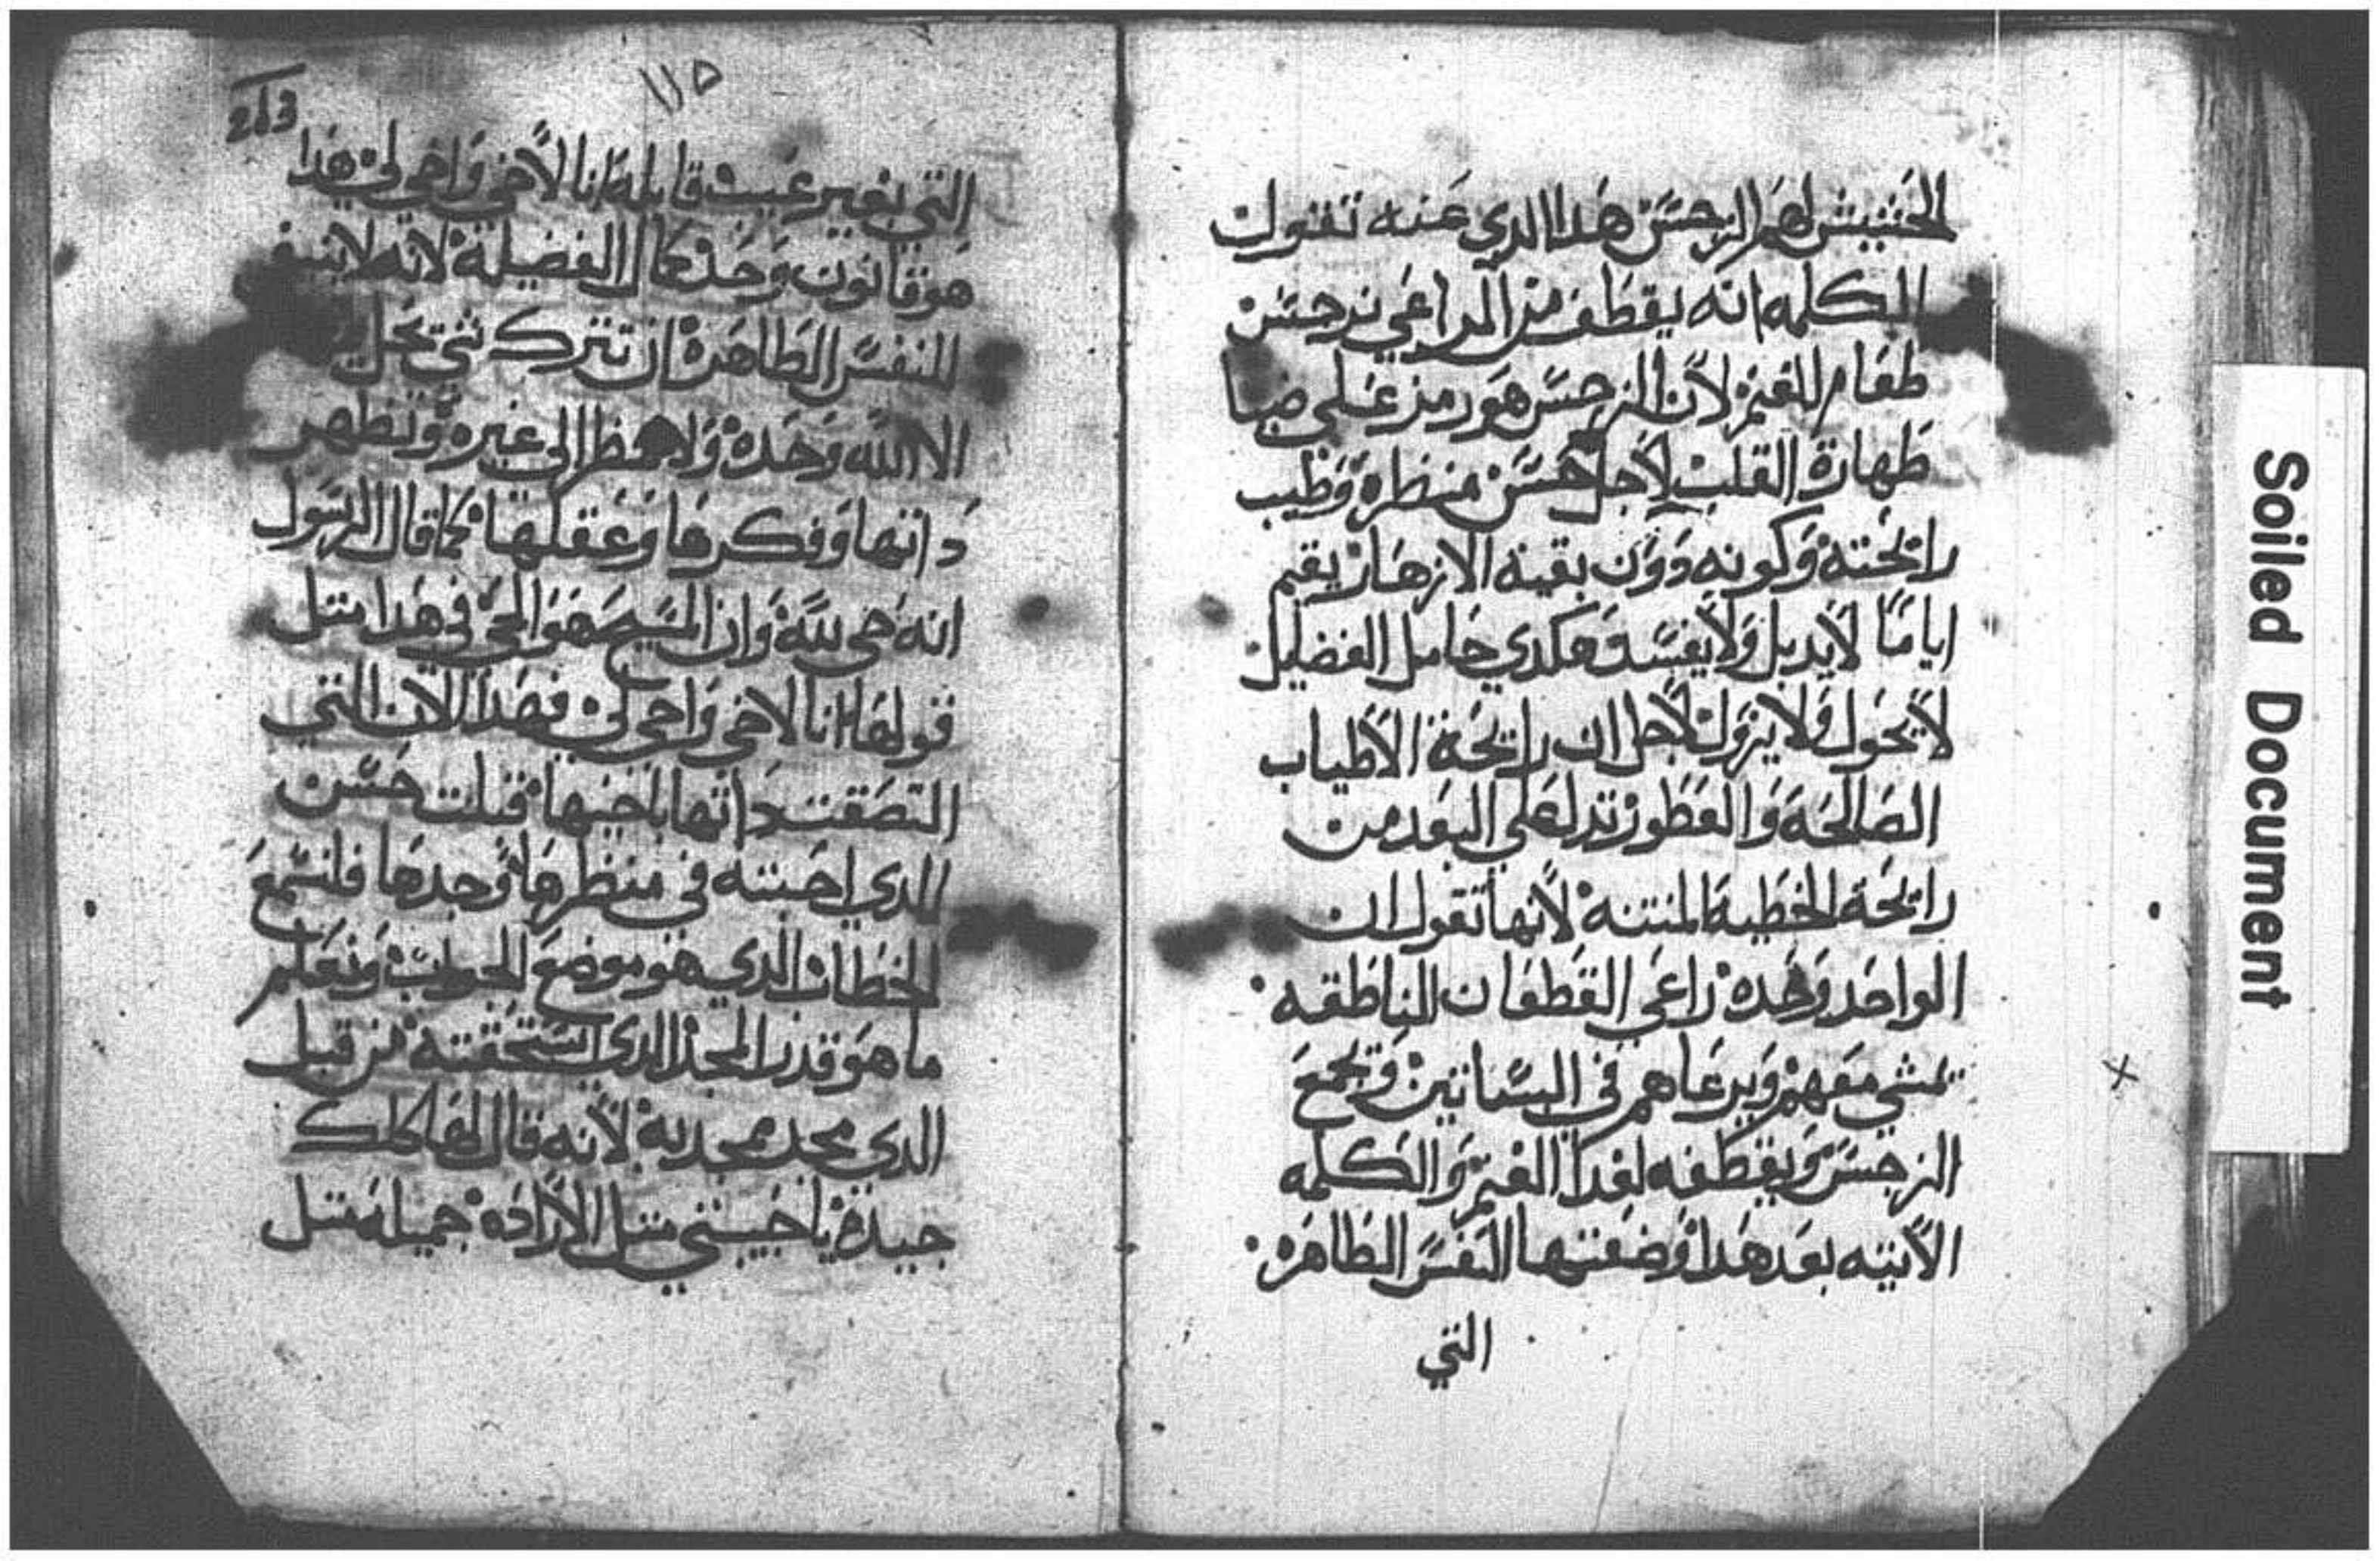 الحشيش لهم النرجس هدا الدي عنه تقول
الكلمه انه يقطف من المراعي نرجس
طعام للغنم لان النرجس هو رمز على
طهارة القلب لاجل حسن منظره وطيب
رايحته وكونه دون بقية الازهار يقيم
اياما لا يدبل ولا يفسد وهكدي حامل الفضايل
لا يحول ولا يزول لاجل ان رايحة الاطياب
الصالحه والعطور تدل على البعد من
رايحة الخطية المنتنه لانها تقول ان
الواحد وحده راعي القطعان الناطقه
تمشي معهم ويرعاهم في البساتين وتجمع
النرجس ويقطفه لغدا الغنم والكلمه
الاتيه بعد هدا وضعتها النفس الطاهره
التي
٢١٣
١١٥
التي بغير عيب قايله انا لاخي واخي لي هدا
هو قانون وحد كمال الفضيلة لانه
للنفس الطاهرة ان تترك شي
الا الله وحده ولا تنظر الي غيره وتطهر
داتها وفكرها وعقلها كما قال الرسول
انه حي لله وان المسيح هو الحي في هدا متل
قولها انا لاخي واخي لي فهدا الان التي
التصقت داتها باخيها قبلت حسن
الدي احبته في منظرها وحدها فلنسمع
الخطاب الدي هو موضع الجواب ونعلم
ما هو قدر المجد الدي استحقته من قبل
الدي مجد مجد به لانه قال لها كلك
جيدة يا حبيبتي متل الارادة جميله متل
Soiled Document